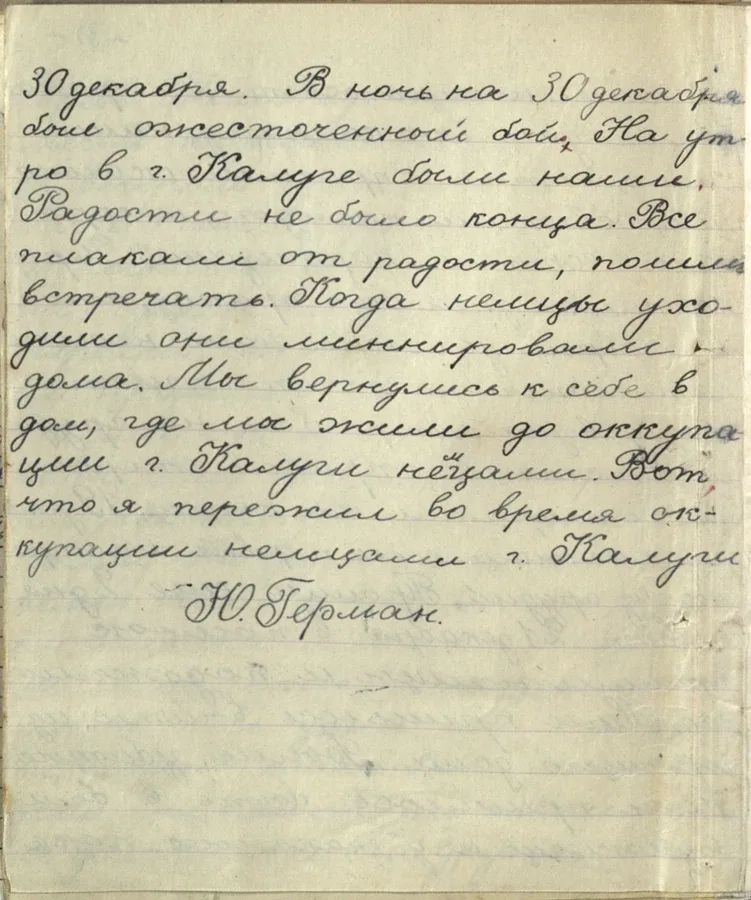 30 декабря. В ночь на 30 декабря
был ожесточенный бой. На ут
ро в г. Калуге были наши.
Радости не было конца. Все
плакали от радости, пошли
встречать. Когда немцы ухо-
дили они миннировали
дома. Мы вернулись к себе в
дом, где мы жили до оккупа
ции г. Калуги немцами. Вот
что я пережил во время ок-
купации немцами г. Калуги
Ю. Герман.